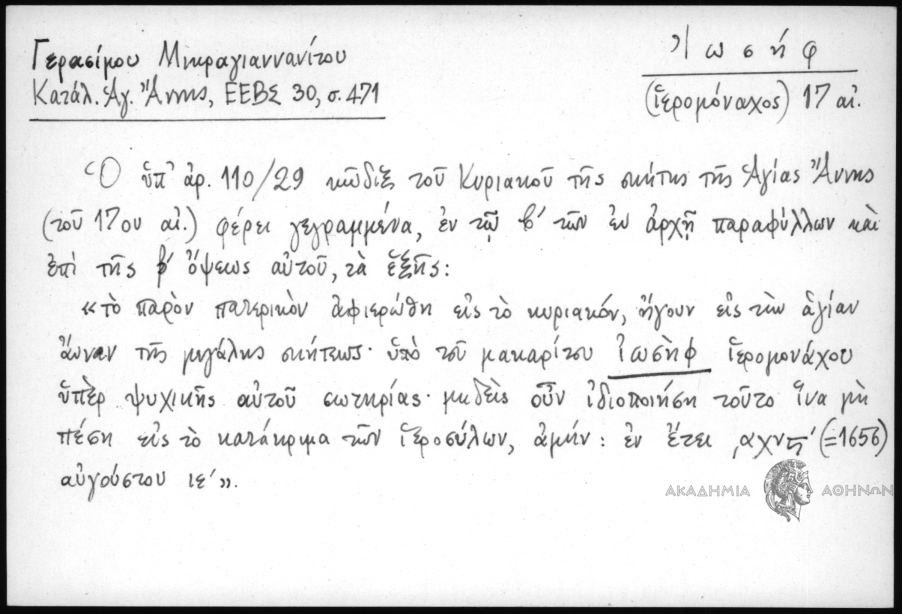 Γερασίμου Μικραγιαννανίτου
Κατάλ. Ἁγ. Ἄννης, ΕΕΒΣ 30, σ. 471
Ἰωσήφ
(ἱερομόναχος) 17 αἰ.
Ὁ ὑπ' ἀρ. 110/29 κῶδιξ τοῦ Κυριακοῦ τῆς σκήτης τῆς Ἁγίας Ἄννης
(τοῦ 17ου αἰ.) φέρει γεγραμμένα, ἐν τῷ β´ τῶν ἐν ἀρχῇ παραφύλλων καὶ
ἐπὶ τῆς β´ ὄψεως αὐτοῦ, τὰ ἑξῆς:
«τὸ παρὸν πατερικὸν ἀφιερώθη εἰς τὸ κυριακόν, ἤγουν εἰς τὴν ἁγίαν
ἄνναν τῆς μεγάλης σκήτεως· ὑπὸ τοῦ μακαρίτου ἰωσὴφ ἱερομονάχου
ὑπὲρ ψυχικῆς αὐτοῦ σωτηρίας· μηδεὶς οὖν ἰδιοποιήση τοῦτο ἵνα μὴ
πέση εἰς τὸ κατάκριμα τῶν ἱεροσύλων, ἀμήν: ἐν ἔτει ͵αχνϛ´ (=1656)
αὐγούστου ιε´».
ΑΚΑΔΗΜΙΑ ΑΘΗΝΩΝ